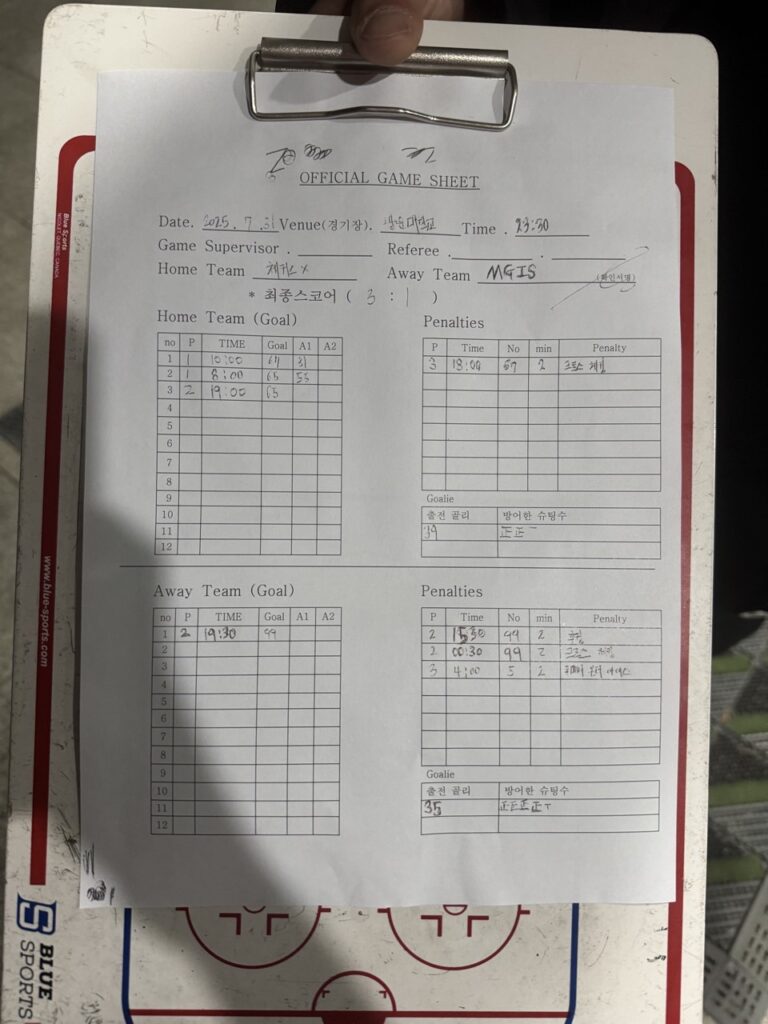 OFFICIAL GAME SHEET
Date. 2025. 7. 31 Venue(경기장). Time . 23:30
Game Supervisor . Referee . .
Home Team Away Team MGIS (확인서명)
* 최종스코어 ( 3 : 1 )
Home Team (Goal)
no P TIME Goal A1 A2
1 1 10:00 67 31
2 1 8:00 65 55
3 2 19:00 65
4
5
6
7
8
9
10
11
12
Penalties
P Time No min Penalty
3 18:04 67 2 크로스 체킹
Goalie
출전 골리 방어한 슈팅수
39 正正一
Away Team (Goal)
no P TIME Goal A1 A2
1 2 19:30 99
2
3
4
5
6
7
8
9
10
11
12
Penalties
P Time No min Penalty
2 15:30 99 2 후킹
2 00:30 99 2 크로스 체킹
3 4:00 5 2
Goalie
출전 골리 방어한 슈팅수
35 正正正正丅
Blue Sports
www.blue-sports.com
BLUE
SPORTS